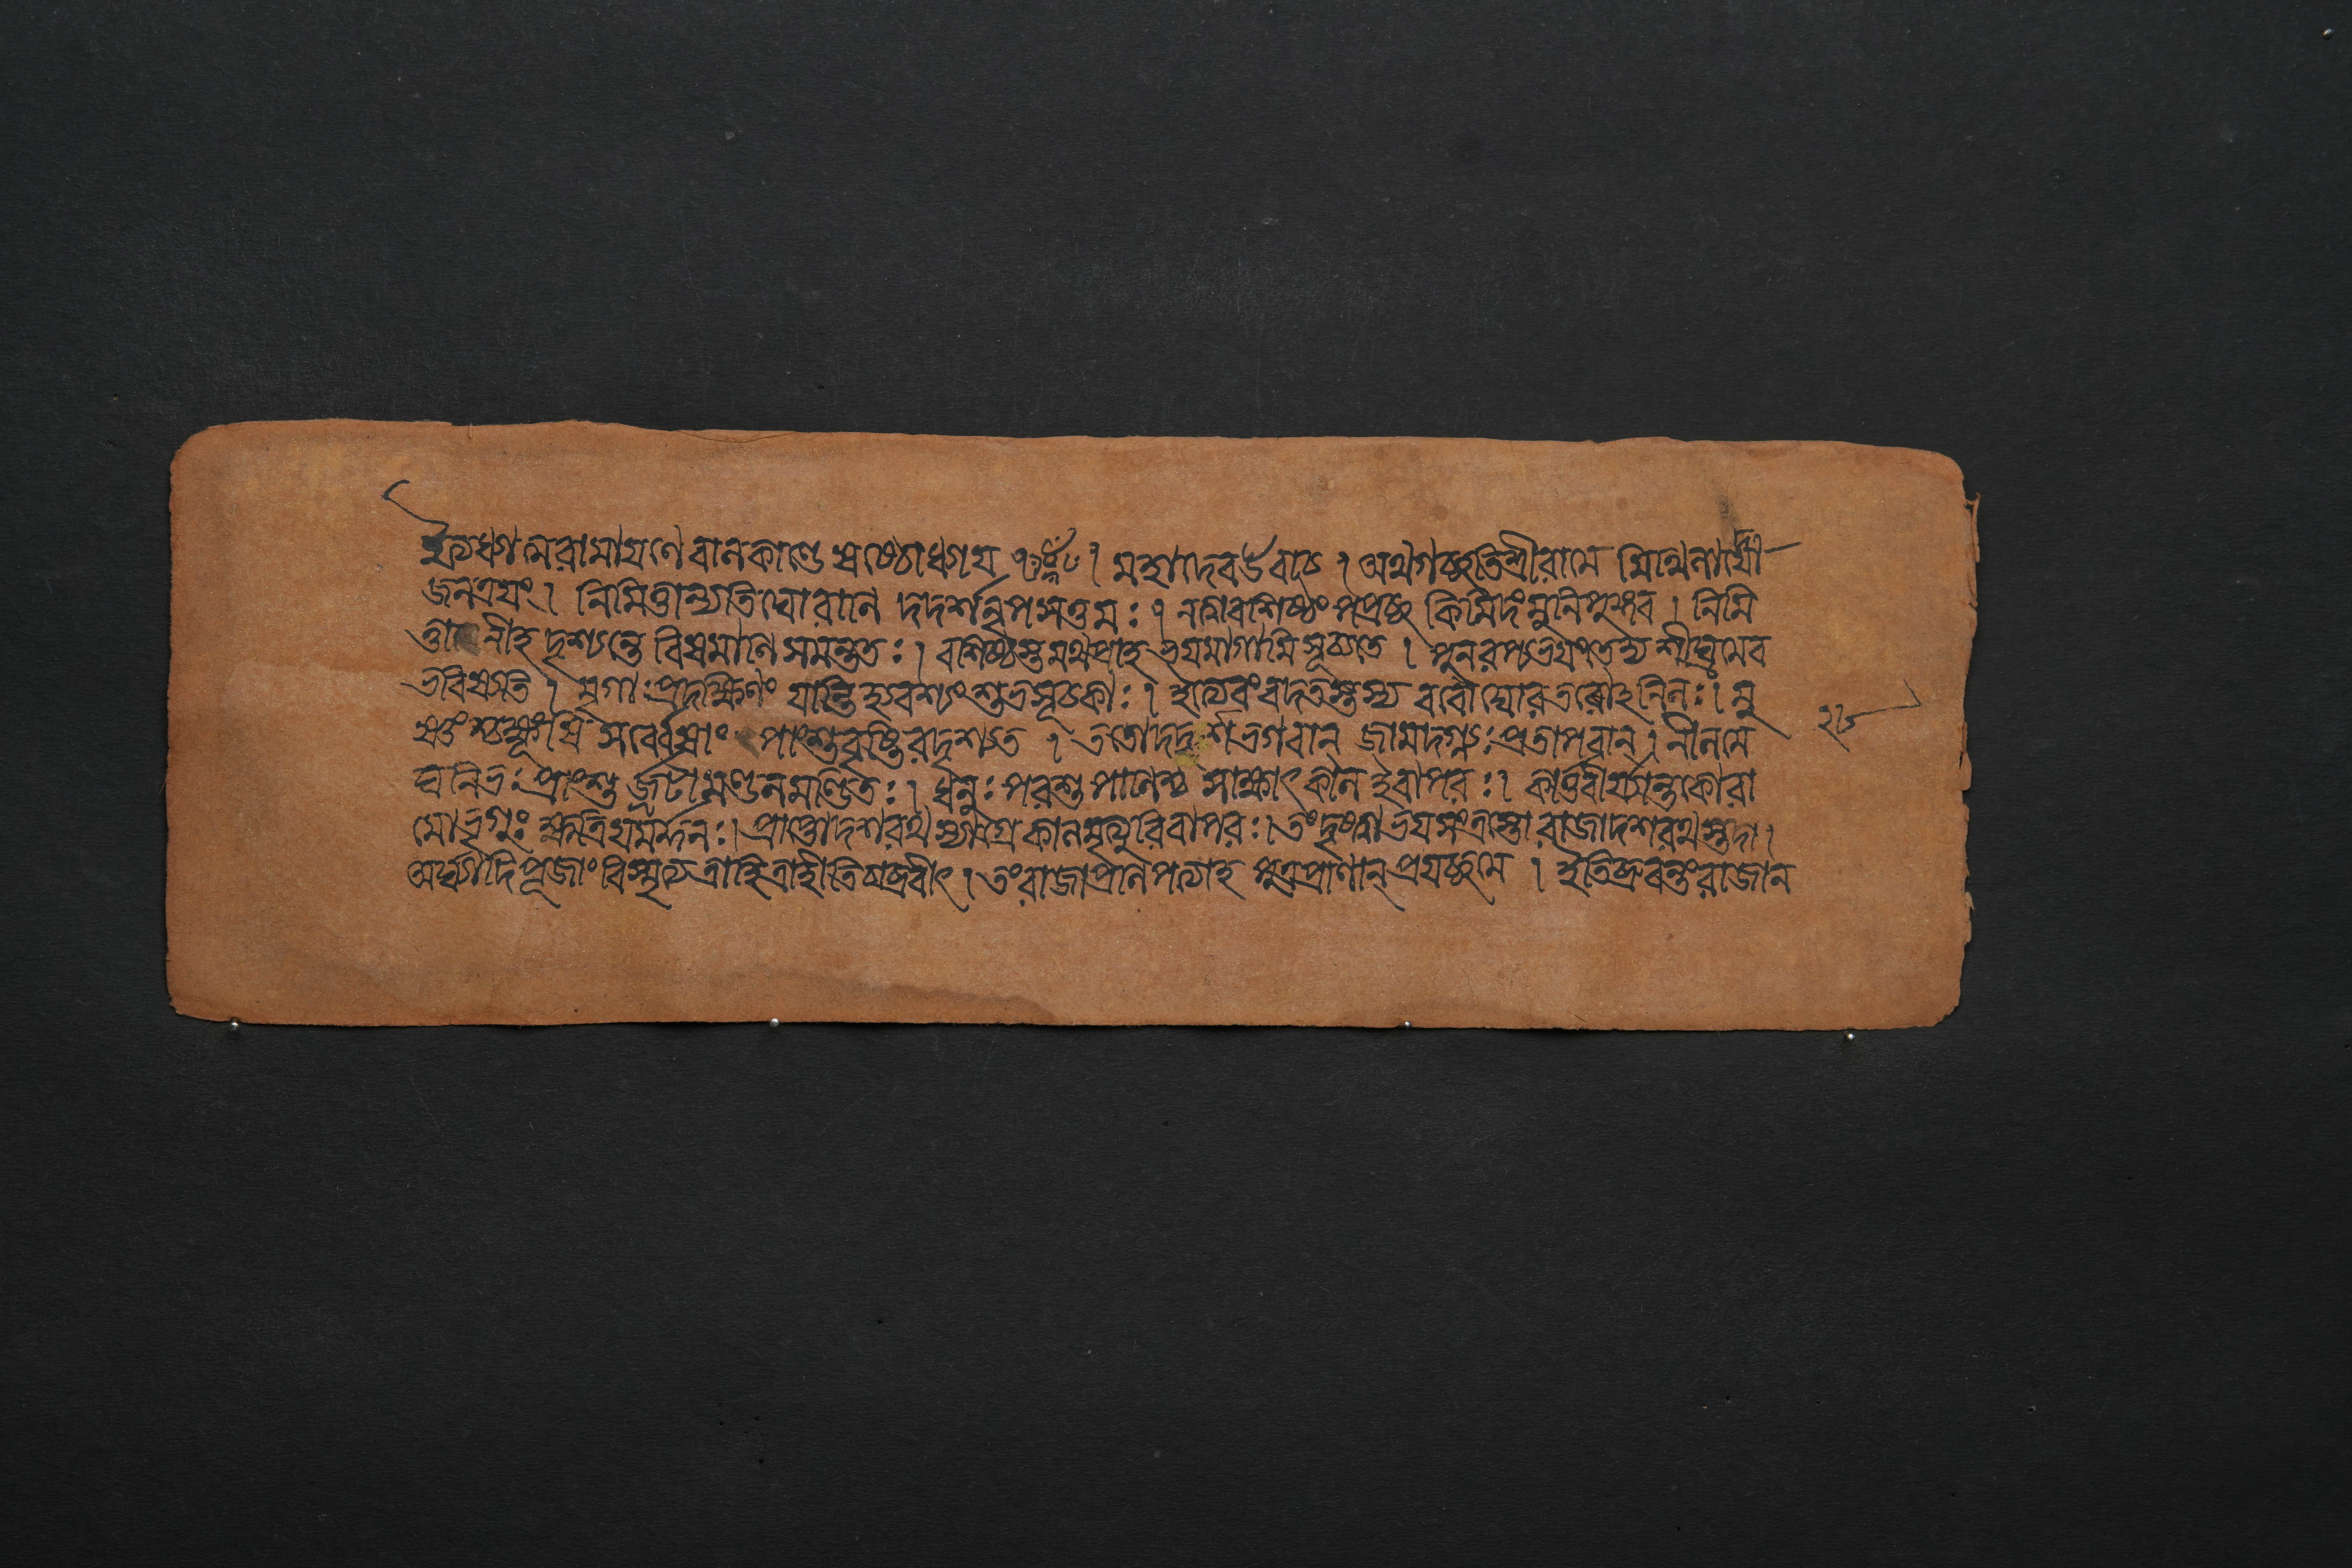 ইত্যধ্যাত্মরামায়ণে বালকাণ্ডে ষষ্ঠোধ্যায় । মহাদেব উবাচ । অথ গচ্ছতি শ্রীরামে মিথিলাদ্যো
জনত্রয়ং । নিমিত্তান্যতিঘোরাণি দদর্শ নৃপসত্তমঃ । নত্বা বশিষ্ঠং পপ্রচ্ছ কিমিদং মুনিপুঙ্গব । নিমি
ত্তানীহ দৃশ্যন্তে বিষমাণি সমন্ততঃ । বশিষ্ঠস্তমথ প্রাহ ভয়মাগামি সূচ্যতে । পুনরপ্যভয়ং তেদ্য শীঘ্রমেব
ভবিষ্যতি । মৃগাঃ প্রদক্ষিণং যান্তি হ্যবশ্যং শুভসূচকাঃ । ইত্যেবং বদতস্তস্য ববৌ ঘোরতরোঽনিলঃ । মু
ষ্ণংশ্চক্ষূংষি সর্ব্বেষাং পাংশুবৃষ্টিরদৃশ্যত । ততো দদর্শ ভগবান্ জামদগ্ন্যঃ প্রতাপবান্ । নীলমে
ঘনিভঃ প্রাংশু র্জটামণ্ডলমণ্ডিতঃ । ধনুঃপরশুপাণিশ্চ সাক্ষাৎ কাল ইবাপরঃ । কার্ত্তবীর্য্যান্তকো রা
মো ভৃগুঃ ক্ষত্রিয়মর্দ্দনঃ । প্রাপ্তো দশরথস্যাগ্রে কালমৃত্যুরিবাপরঃ । তং দৃষ্ট্বা ভয়সংত্রস্তো রাজা দশরথস্তদা ।
অর্ঘ্যাদিপূজাং বিস্মৃত্য ত্রাহি ত্রাহীতি চাব্রবীৎ । তং রাজা প্রণিপত্যাহ পুত্রপ্রাণান্ প্রযচ্ছ মে । ইতি ব্রুবন্তং রাজান